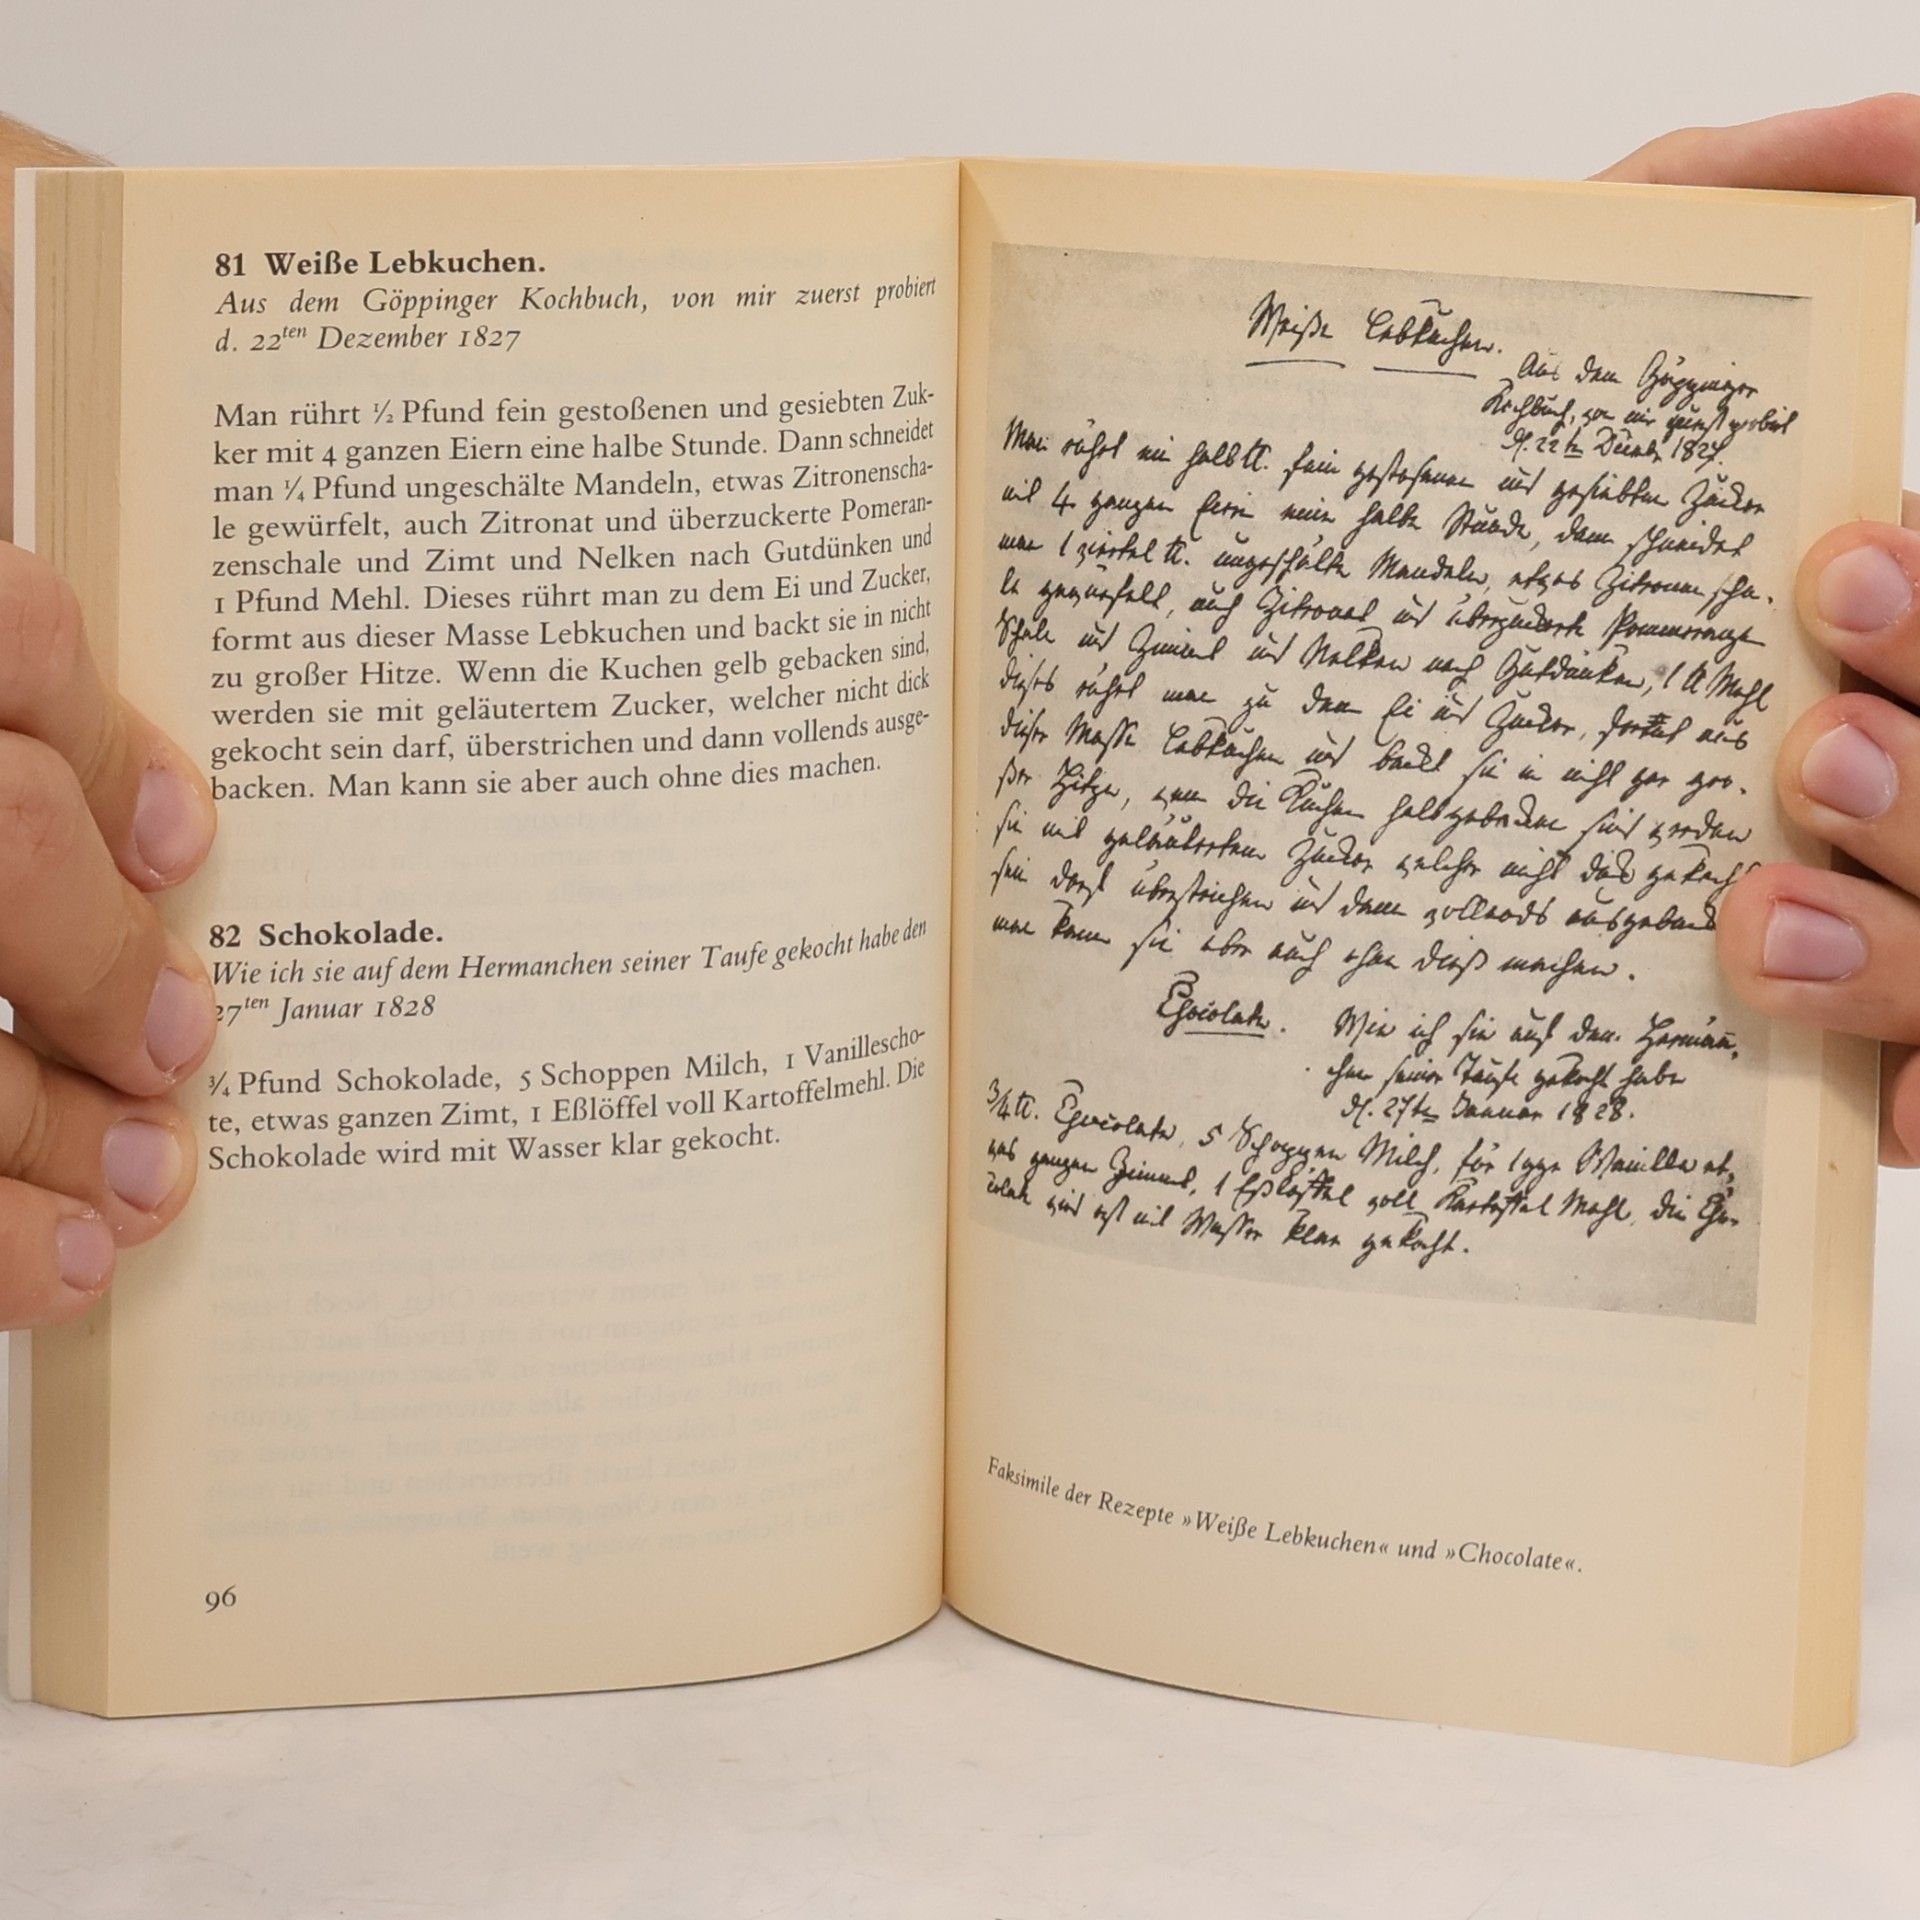 81 Weiße Lebkuchen.
Aus dem Göppinger Kochbuch, von mir zuerst probiert
d. 22ten Dezember 1827
Man rührt ½ Pfund fein gestoßenen und gesiebten Zuk-
ker mit 4 ganzen Eiern eine halbe Stunde. Dann schneidet
man ¼ Pfund ungeschälte Mandeln, etwas Zitronenscha-
le gewürfelt, auch Zitronat und überzuckerte Pomeran-
zenschale und Zimt und Nelken nach Gutdünken und
1 Pfund Mehl. Dieses rührt man zu dem Ei und Zucker,
formt aus dieser Masse Lebkuchen und backt sie in nicht
zu großer Hitze. Wenn die Kuchen gelb gebacken sind,
werden sie mit geläutertem Zucker, welcher nicht dick
gekocht sein darf, überstrichen und dann vollends ausge-
backen. Man kann sie aber auch ohne dies machen.
82 Schokolade.
Wie ich sie auf dem Hermanchen seiner Taufe gekocht habe den
27ten Januar 1828
¾ Pfund Schokolade, 5 Schoppen Milch, 1 Vanillescho-
te, etwas ganzen Zimt, 1 Eßlöffel voll Kartoffelmehl. Die
Schokolade wird mit Wasser klar gekocht.
96
Weiße Lebkuchen.
Aus dem Göppinger
Kochbuch, von mir zuerst probiert
d. 22ten 1827.
Man rührt ein halb ℔. fein gestosenen und gesiebten Zucker
mit 4 ganzen Eiern eine halbe Stunde, dann schneidet
man 1 viertel ℔. ungeschälte Mandeln, etwas Zitronenscha-
le gewürfelt, auch Zitronat und überzuckerte Pomeranzen
Schale und Zimmt und Nelken nach Gutdünken, 1 ℔ Mehl
dieses rührt man zu dem Ei und Zucker, formt aus
dieser Masse Lebkuchen und backt sie in nicht gar gro-
ßer Hitze, wenn die Kuchen halbgebacken sind werden
sie mit geläutertem Zucker welcher nicht dick gekocht
sein darf überstrichen und dann vollends
man kann sie aber auch ohne dieß machen.
Chocolate. Wie ich sie auf dem
chen seiner Taufe gekocht habe
d. 27ten Januar 1828.
3/4 ℔. Chocolate, 5 Schoppen Milch, für Vanille et-
was ganzen Zimmt, 1 Eßlöffel voll Kartoffel Mehl, die Cho-
colate wird erst mit Wasser klar gekocht.
Faksimile der Rezepte »Weiße Lebkuchen« und »Chocolate«.